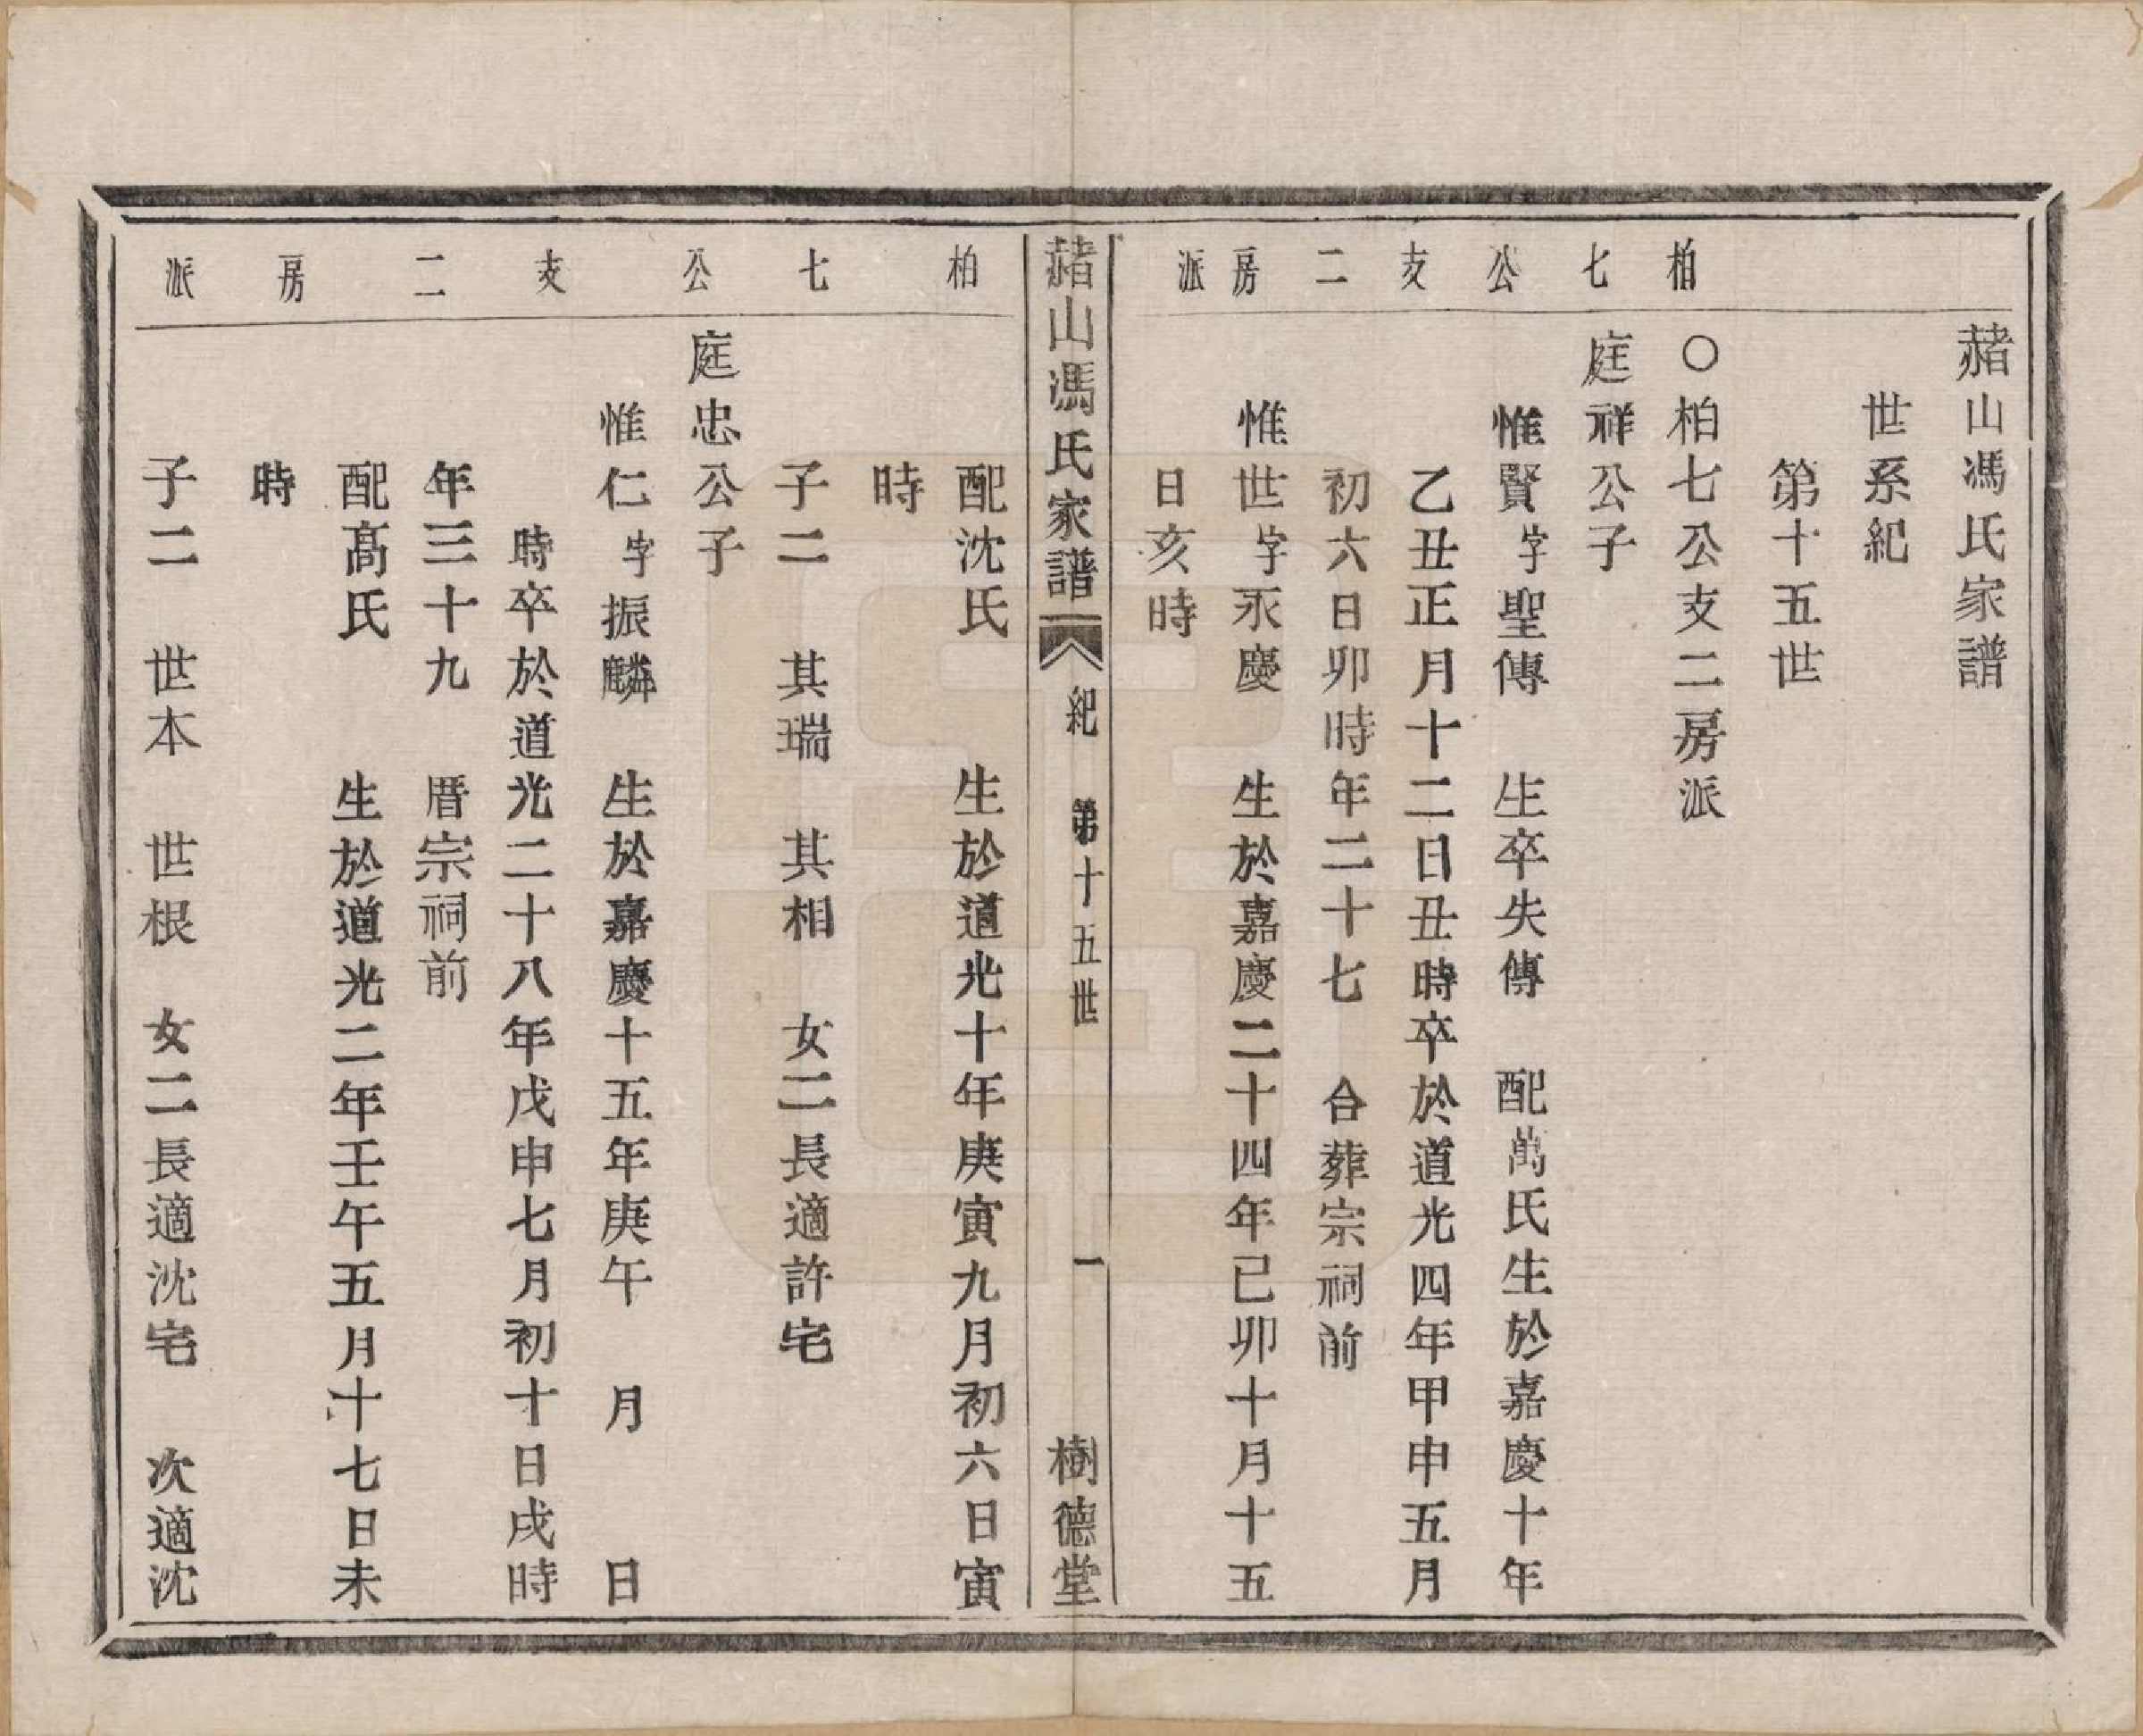 赭山馮氏家譜
世系紀
第十五世
柏七公支二房派
〇柏七公支二房派
庭祥公子
惟賢字聖傳 生卒失傳 配萬氏生於嘉慶十年
乙丑正月十二日丑時卒於道光四年甲申五月
初六日卯時年二十七 合葬宗祠前
惟世字永慶 生於嘉慶二十四年已卯十月十五
日亥時
赭山馮氏家譜 紀 第十五世 一 樹德堂
柏七公支二房派
配沈氏 生於道光十年庚寅九月初六日寅
時
子二 其瑞 其相 女二長適許宅
庭忠公子
惟仁字振麟 生於嘉慶十五年庚午 月 日
時卒於道光二十八年戊申七月初十日戌時
年三十九 厝宗祠前
配髙氏 生於道光二年壬午五月十七日未
時
子二 世本 世根 女二長適沈宅 次適沈